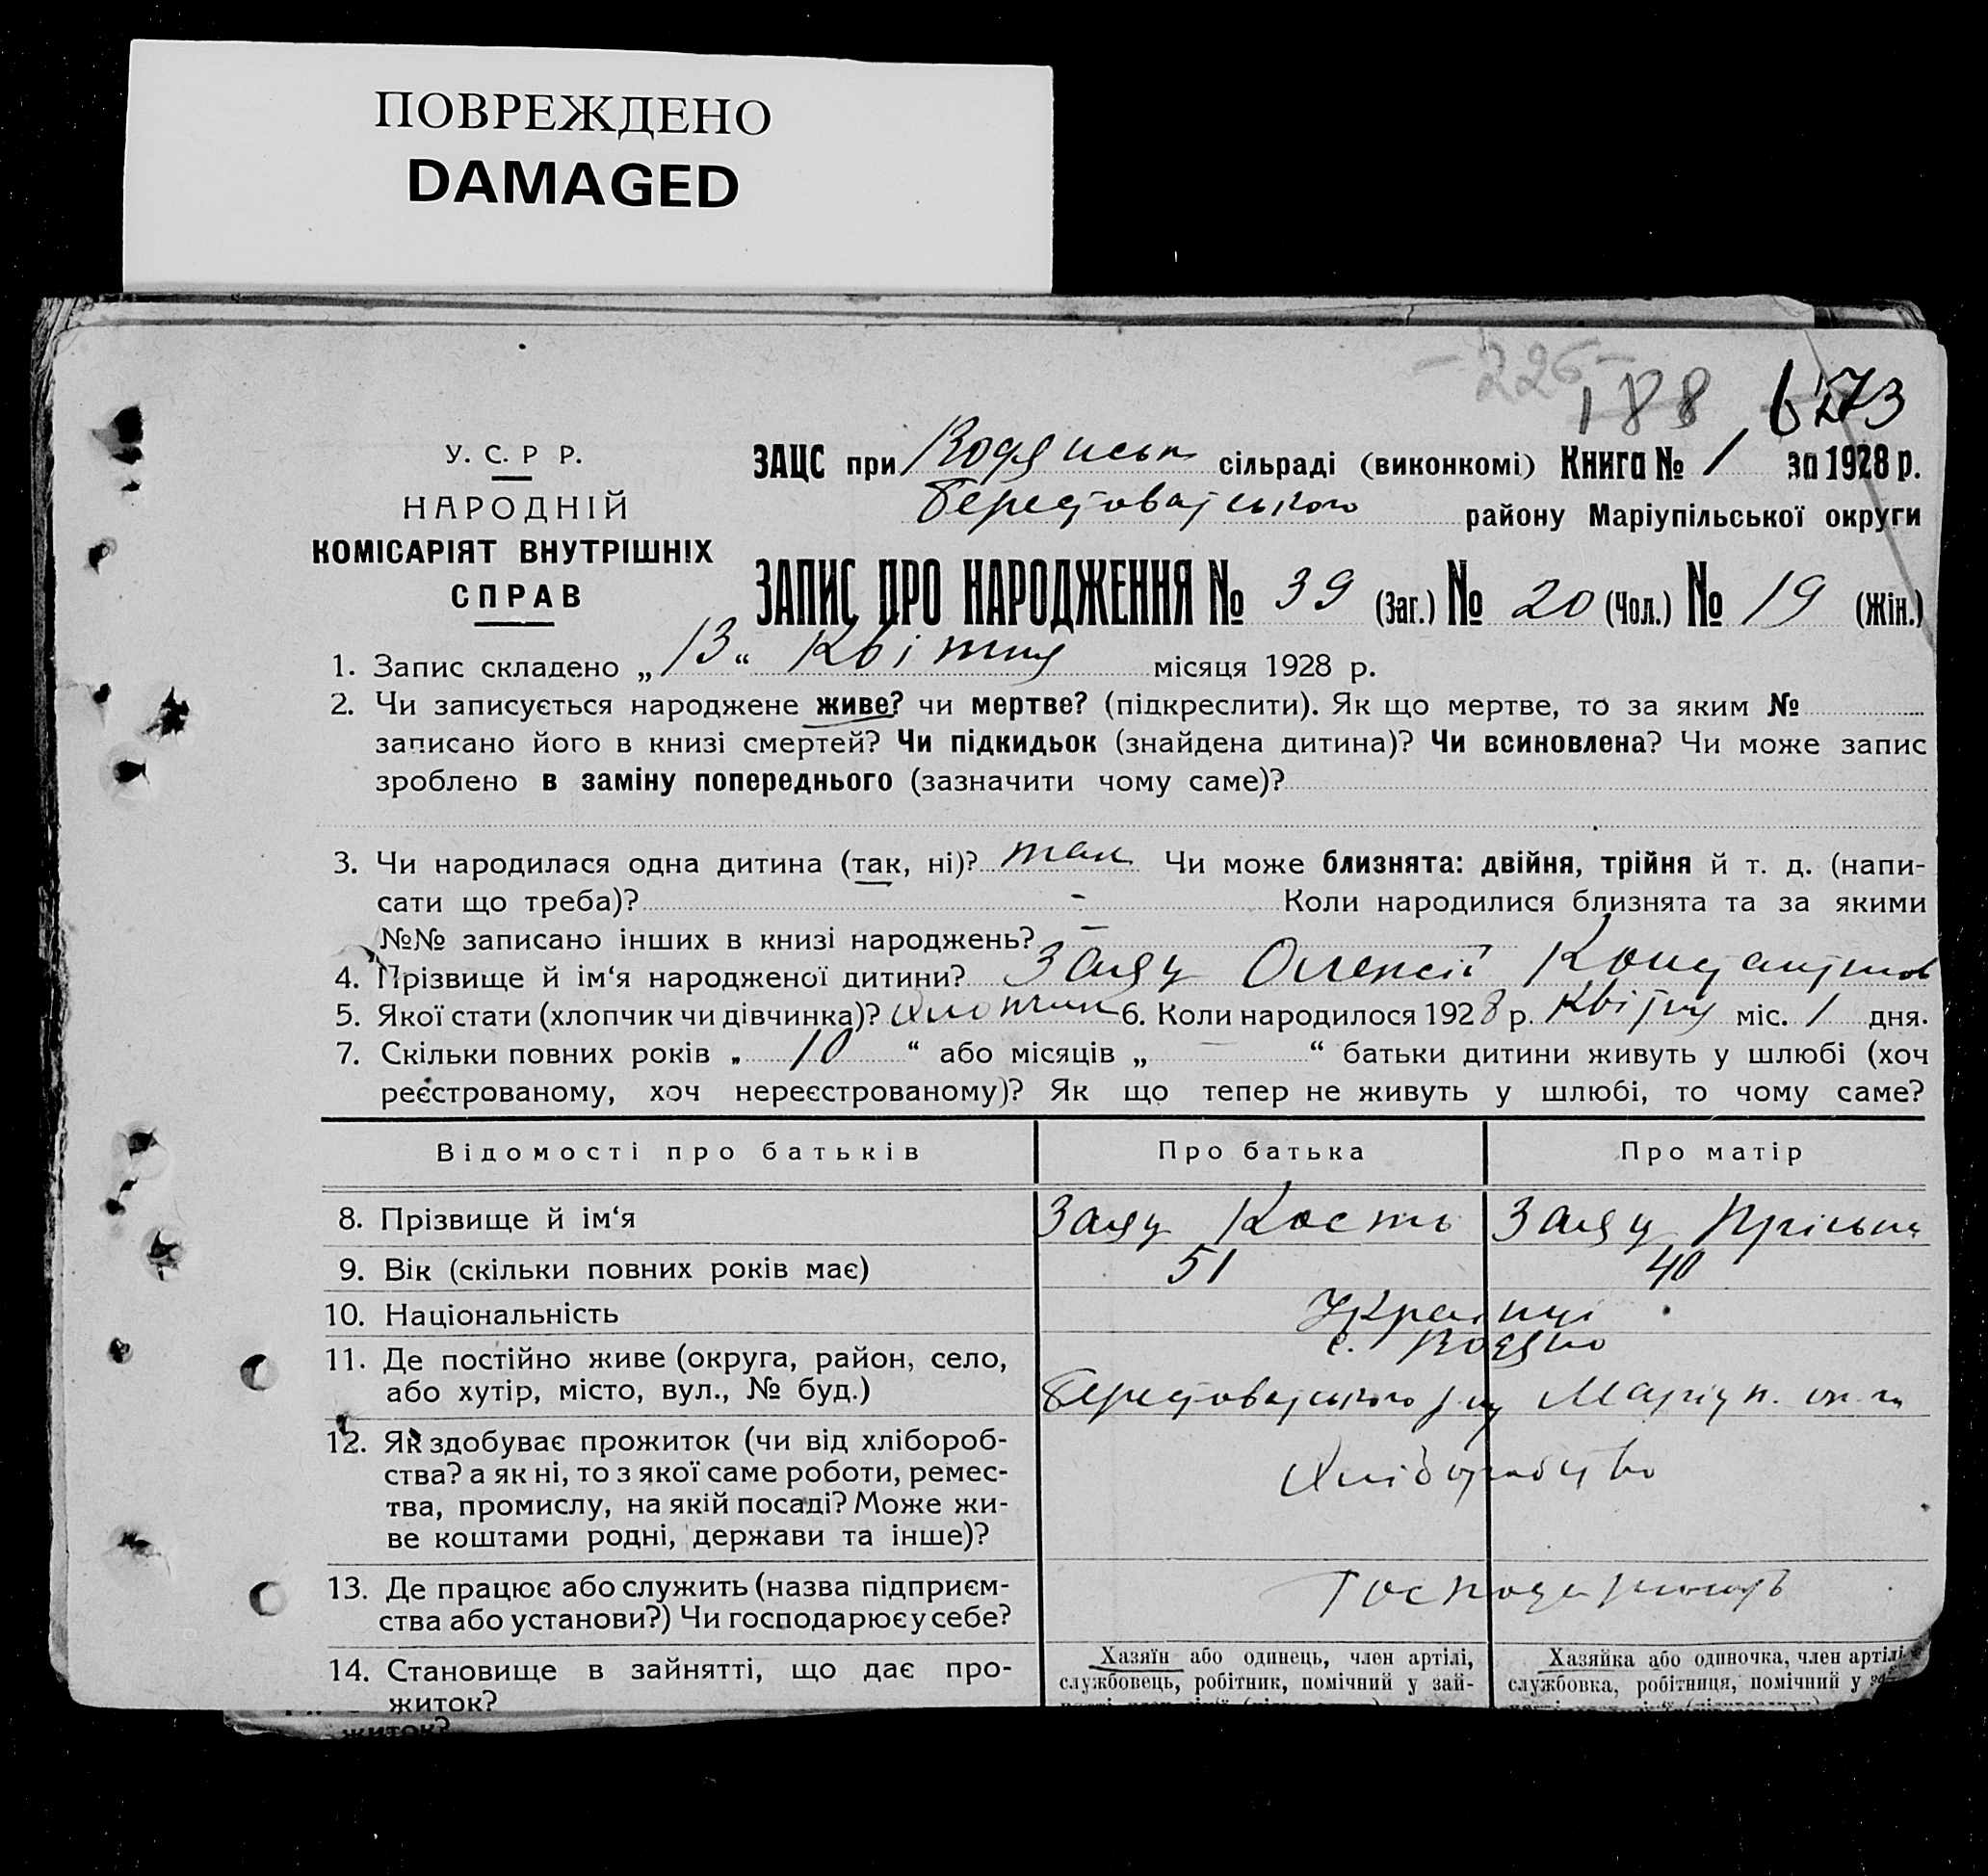 ПОВРЕЖДЕНО
DAMAGED
-226-
188 673
У. С. Р Р.
НАРОДНІЙ
КОМІСАРІЯТ ВНУТРІШНІХ
СПРАВ
ЗАЦС при Водянськ сільраді (виконкомі) Книга № 1 за 1928 р.
Берестоватського району Маріупільської округи
ЗАПИС ПРО НАРОДЖЕННЯ № 39 (Заг.) № 20 (Чол.) № 19 (Жін.)
1. Запис складено „13“ Квітня місяця 1928 р.
2. Чи записується народжене живе? чи мертве? (підкреслити). Як що мертве, то за яким №
записано його в книзі смертей? Чи підкидьок (знайдена дитина)? Чи всиновлена? Чи може запис
зроблено в заміну попереднього (зазначити чому саме)?
3. Чи народилася одна дитина (так, ні)? так Чи може близнята: двійня, трійня й т. д. (напи-
сати що треба)? - Коли народилися близнята та за якими
№№ записано інших в книзі народжень? -
4. Прізвище й ім‘я народженої дитини? Заяц Олексій Констянтинов
5. Якої стати (хлопчик чи дівчинка)? Хлопчик 6. Коли народилося 1928 р. Квітня міс. 1 дня.
7. Скільки повних років „10“ або місяців „ — “ батьки дитини живуть у шлюбі (хоч
реєстрованому, хоч нереєстрованому)? Як що тепер не живуть у шлюбі, то чому саме?
Відомості про батьків Про батька Про матір
8. Прізвище й ім‘я Заяц Кость Заяц
9. Вік (скільки повних років має) 51 40
10. Національність Українці
11. Де постійно живе (округа, район, село, с. Водяно
або хутір, місто, вул., № буд.) Берестоватського р-ну Маріуп. окр-ги
12. Як здобуває прожиток (чи від хлібороб-
ства? а як ні, то з якої саме роботи, ремес- Хліборобство
тва, промислу, на якій посаді? Може жи-
ве коштами родні, держави та інше)?
13. Де працює або служить (назва підприєм- Господарюють
ства або установи?) Чи господарює у себе?
14. Становище в зайнятті, що дає про- Хазяїн або одинець, член артілі, Хазяйка або одиночка, член артілі
житок? службовець, робітник, помічний у зай- службовка, робітниця, помічний у
житок?